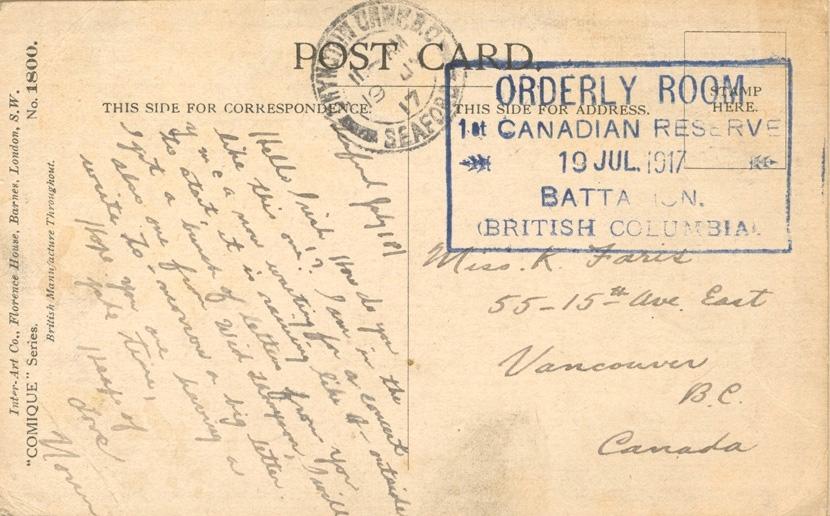 POST CARD.
THIS SIDE FOR CORRESPONDENCE.
THIS SIDE FOR ADDRESS.
STAMP
HERE.
CAMP
19 JY 17
SEAFORD
ORDERLY ROOM
1st CANADIAN RESERVE
19 JUL. 1917
BATTA ON.
(BRITISH COLUMBIA)
Seaford July 18
Hello How do you
like this one? I am in the
Y m c a now waiting for a concert
to start, it is raining like H- outside
I got a bunch of letters from you
also one from I will
write to-morrow a big letter.
Hope you are having a
time,
Heaps of
Love
Norm
Miss. K. Faris
55-15th Ave. East
Vancouver
B.C.
Canada
Inter-Art Co., Florence House, Barnes, London, S.W.
"COMIQUE" Series. No. 1800.
British Manufacture Throughout.